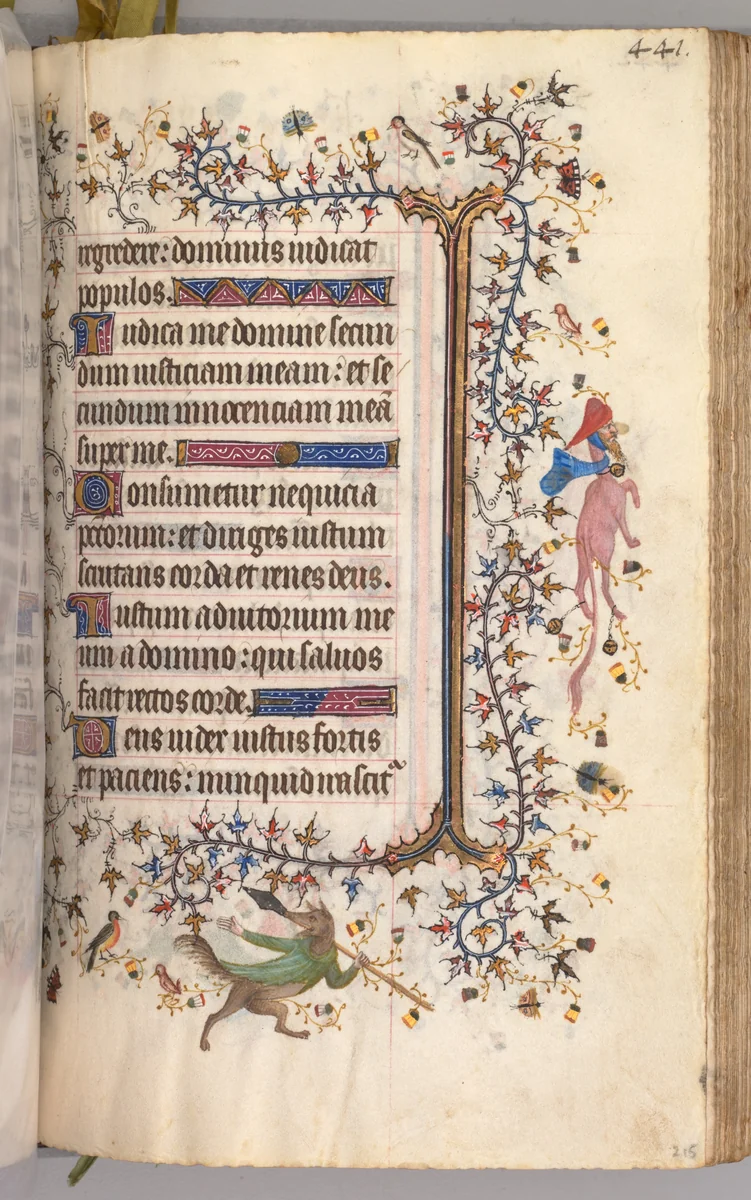 441.
regredere: dominus iudicat
populos.
Iudica me domine secun
dum iusticiam meam: et se
cundum innocenciam meā
super me.
Consumetur nequicia
pccorum: et diriges iustum
scrutans corda et renes deus.
Iustum adiutorium me
um a domino: qui saluos
facit rectos corde.
Deus iudex iustus fortis
et paciens: nunquid irascit᷑
215